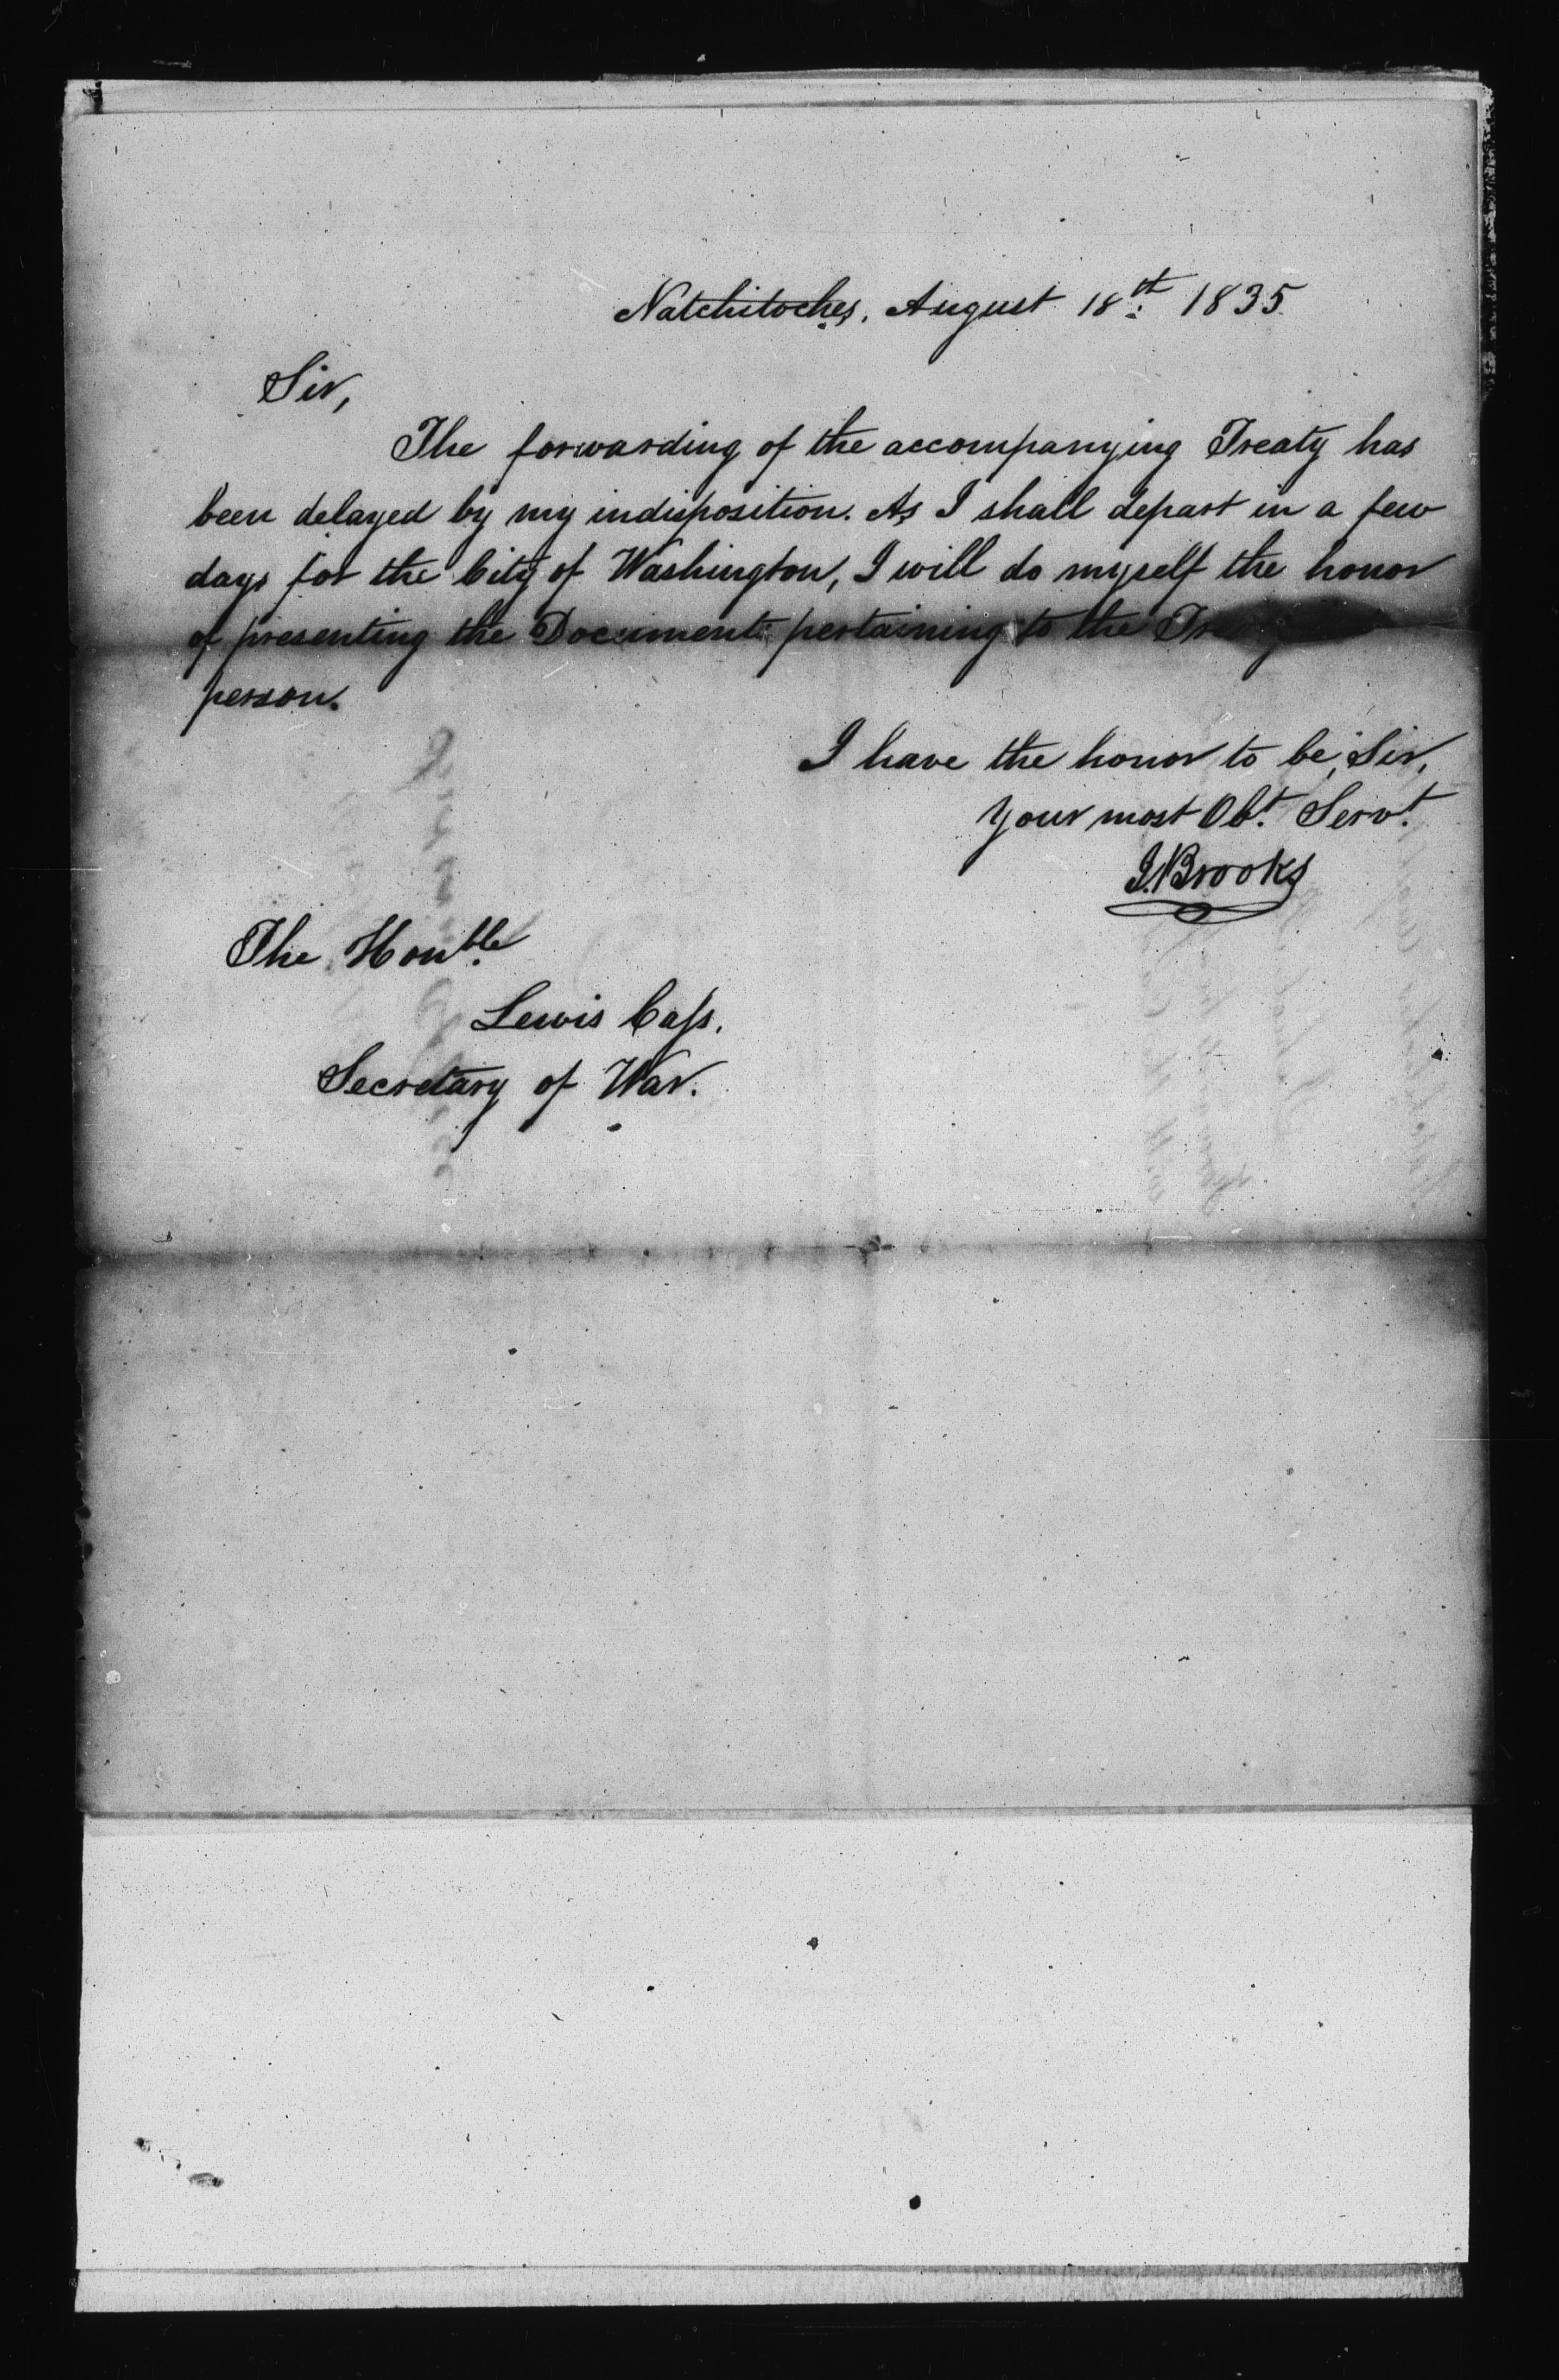 Natchitoches, August 18th 1835.
Sir,
The forwarding of the accompanying Treaty has
been delayed by my indisposition. As I shall depart in a few
days for the City of Washington, I will do myself the honor
of presenting the Documents pertaining to the
person.
I have the honor to be, Sir,
your most Obt. Servt.
J. Brooks
The Honble
Lewis Cass.
Secretary of War.